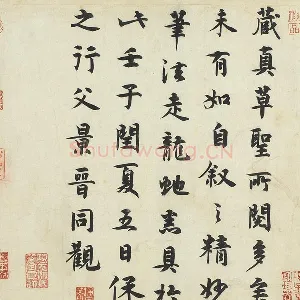 藏真草聖所閱多矣
未有如自叙之精妙
筆法走龍虵悉具於
此壬子閏夏五日保
之行父景晉同觀
Shufawang.CN